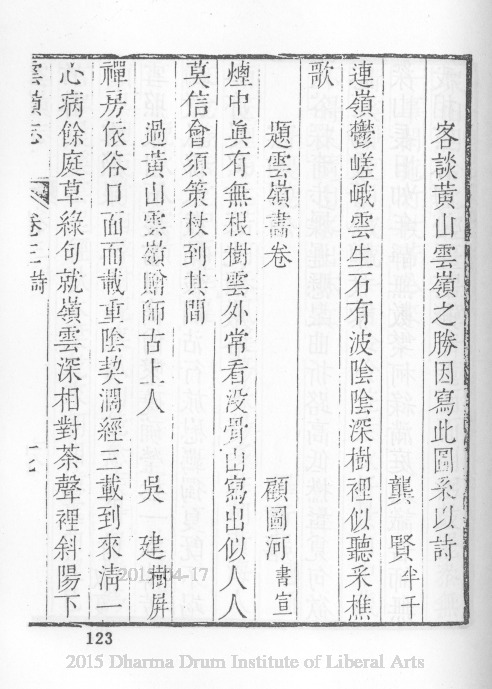 客談黃山雲嶺之勝因寫此圖系以詩
龔賢半千
連嶺鬱嵯峨雲生石有波陰陰深樹裡似聽采樵
歌
題雲嶺畫卷
顧圖河書宣
煙中眞有無根樹雲外常看没骨山寫出似人人
莫信會須策杖到其間
過黃山雲嶺贈師古上人
吳建樹屛
禪房依谷口面面載重陰契濶經三載到來淸一
心病餘庭草綠句就嶺雲深相對茶聲裡斜陽下
雲嶺志
卷三詩
123
2015-04-17
2015 Dharma Drum Institute of Liberal Arts